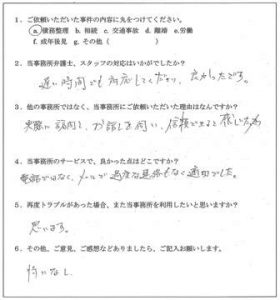 1. ご依頼いただいた事件の内容に丸をつけてください。
a.債務整理 b.相続 c.交通事故 d.離婚 e.労働
f.成年後見 g.その他( )
2. 当事務所弁護士、スタッフの対応はいかがでしたか?
遅い時間でも対応してくださり、良かったです。
3. 他の事務所ではなく、当事務所にご依頼いただいた理由はなんですか?
実際に訪問して、お話しを伺い、信頼できると感じた為
4. 当事務所のサービスで、良かった点はどこですか?
電話ではなく、メールで過度な連絡もなく適切でした。
5. 再度トラブルがあった場合、また当事務所を利用したいと思いますか?
思います。
6. その他、ご意見、ご感想などありましたら、ご記入お願いします。
特になし